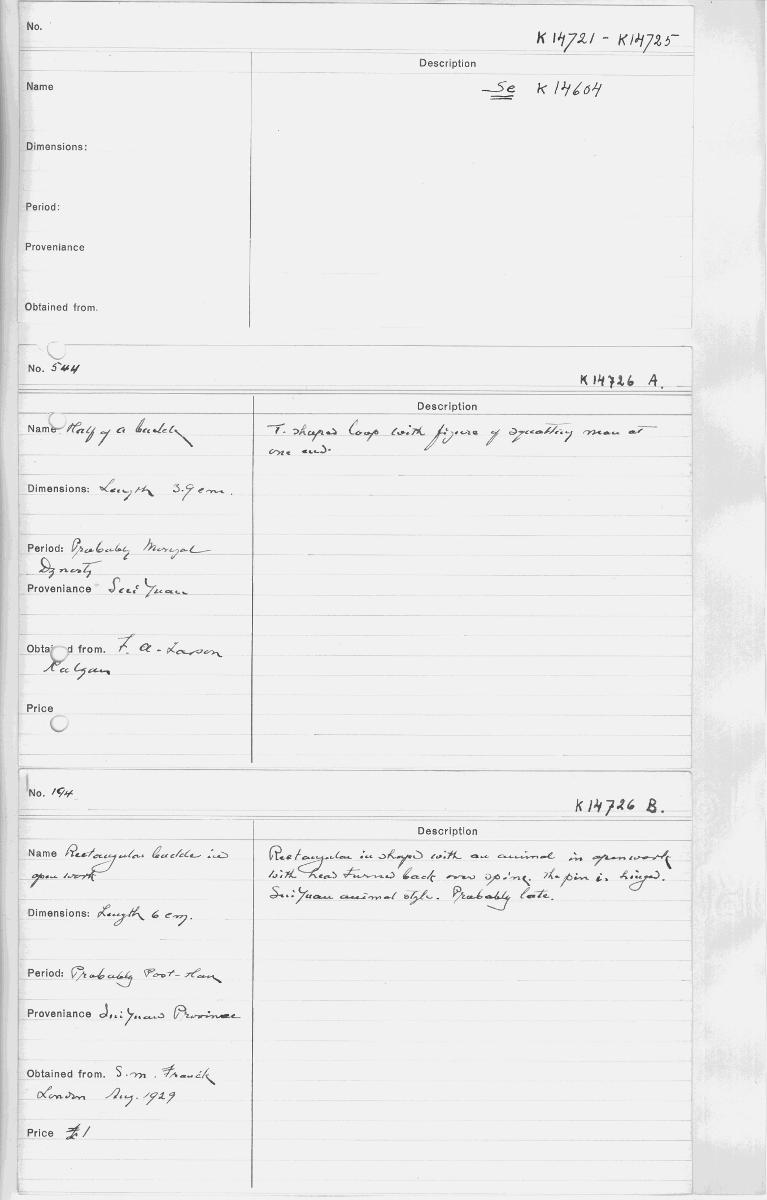 No.
K 14721 - K14725
Description
Name
Se K 14604
Dimensions:
Period:
Proveniance
Obtained from.
No. 544
K 14726 A.
Description
Name Half of a buckle
T. shaped loop with figure of squatting man at
one end.
Dimensions: Length 3.9 cm.
Period: Probably Mongol
Dynasty
Proveniance Sui Yuan
Obtained from. F. A. Larson
Kalgan
Price
No. 194
K 14726 B.
Description
Name Rectangular buckle in
open work
Rectangular in shape with an animal in openwork
with head turned back over spine. The pin is hinged.
Sui Yuan animal style. Probably late.
Dimensions: Length 6 cm.
Period: Probably Post-Han
Proveniance Sui Yuan Province
Obtained from. S. M. Franck
London Aug. 1929
Price £1